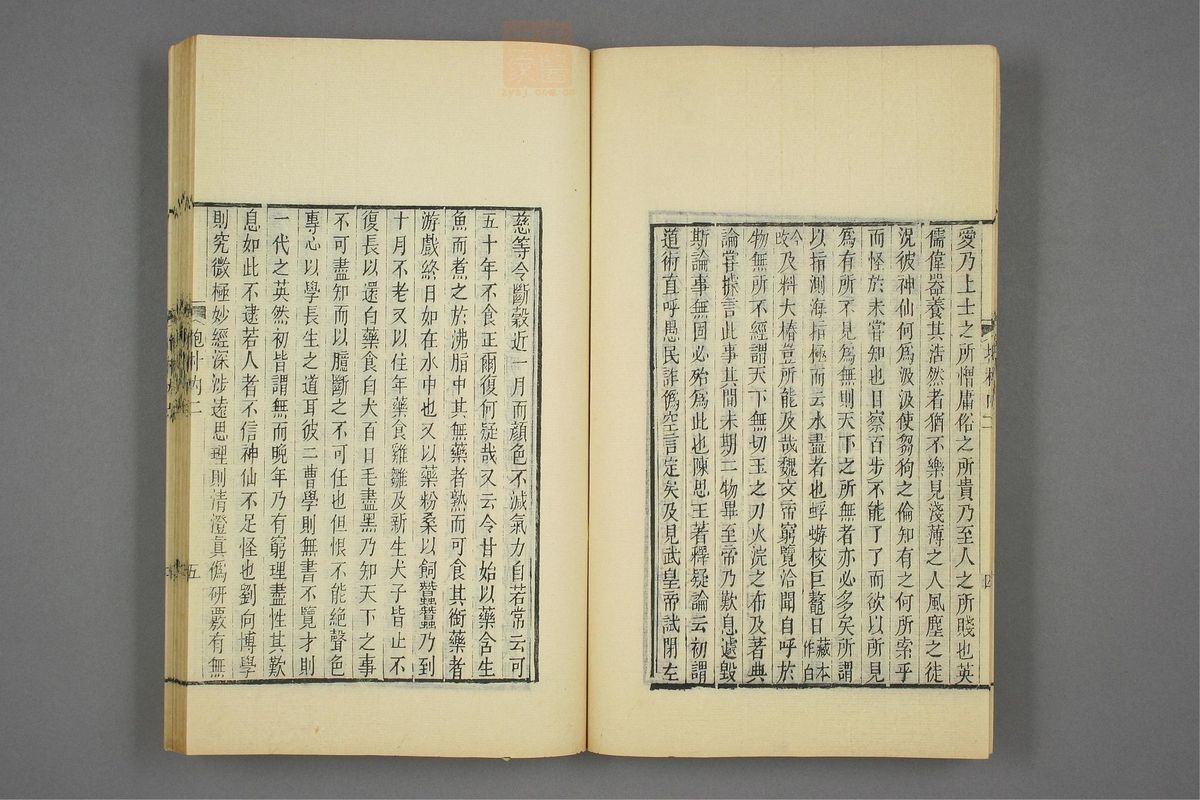 愛乃上士之所憎庸俗之所貴乃至人之所賤也英
儒偉器養其浩然者猶不樂見淺薄之人風塵之徒
況彼神仙何為汲汲使芻狗之倫知有之何所索乎
而怪於未嘗知也目察百步不能了了而欲以所見
為有所不見為無則天下之所無者亦必多矣所謂
以指測海指極而云水盡者也蜉蝣校巨鼇日藏本作白
今改及料大椿豈所能及哉魏文帝窮覽洽聞自呼於
物無所不經謂天下無切玉之刀火浣之布及著典
論嘗據言此事其間未期二物畢至帝乃歎息遽毀
斯論事無固必殆為此也陳思王著釋疑論云初謂
道術直呼愚民詐偽空言定矣及見武皇帝試閉左
四
慈等令斷穀近一月而顏色不減氣力自若常云可
五十年不食正爾復何疑哉又云令甘始以藥含生
魚而煮之於沸脂中其無藥者熟而可食其銜藥者
游戲終日如在水中也又以藥粉桑以飼蠶蠶乃到
十月不老又以住年藥食雞雛及新生犬子皆止不
復長以還白藥食白犬百日毛盡黑乃知天下之事
不可盡知而以臆斷之不可任也但恨不能絕聲色
專心以學長生之道耳彼二曹學則無書不覽才則
一代之英然初皆謂無而晚年乃有窮理盡性其歎
息如此不逮若人者不信神仙不足怪也劉向博學
則究微極妙經深涉遠思理則清澄真偽研覈有無
抱朴內二
五